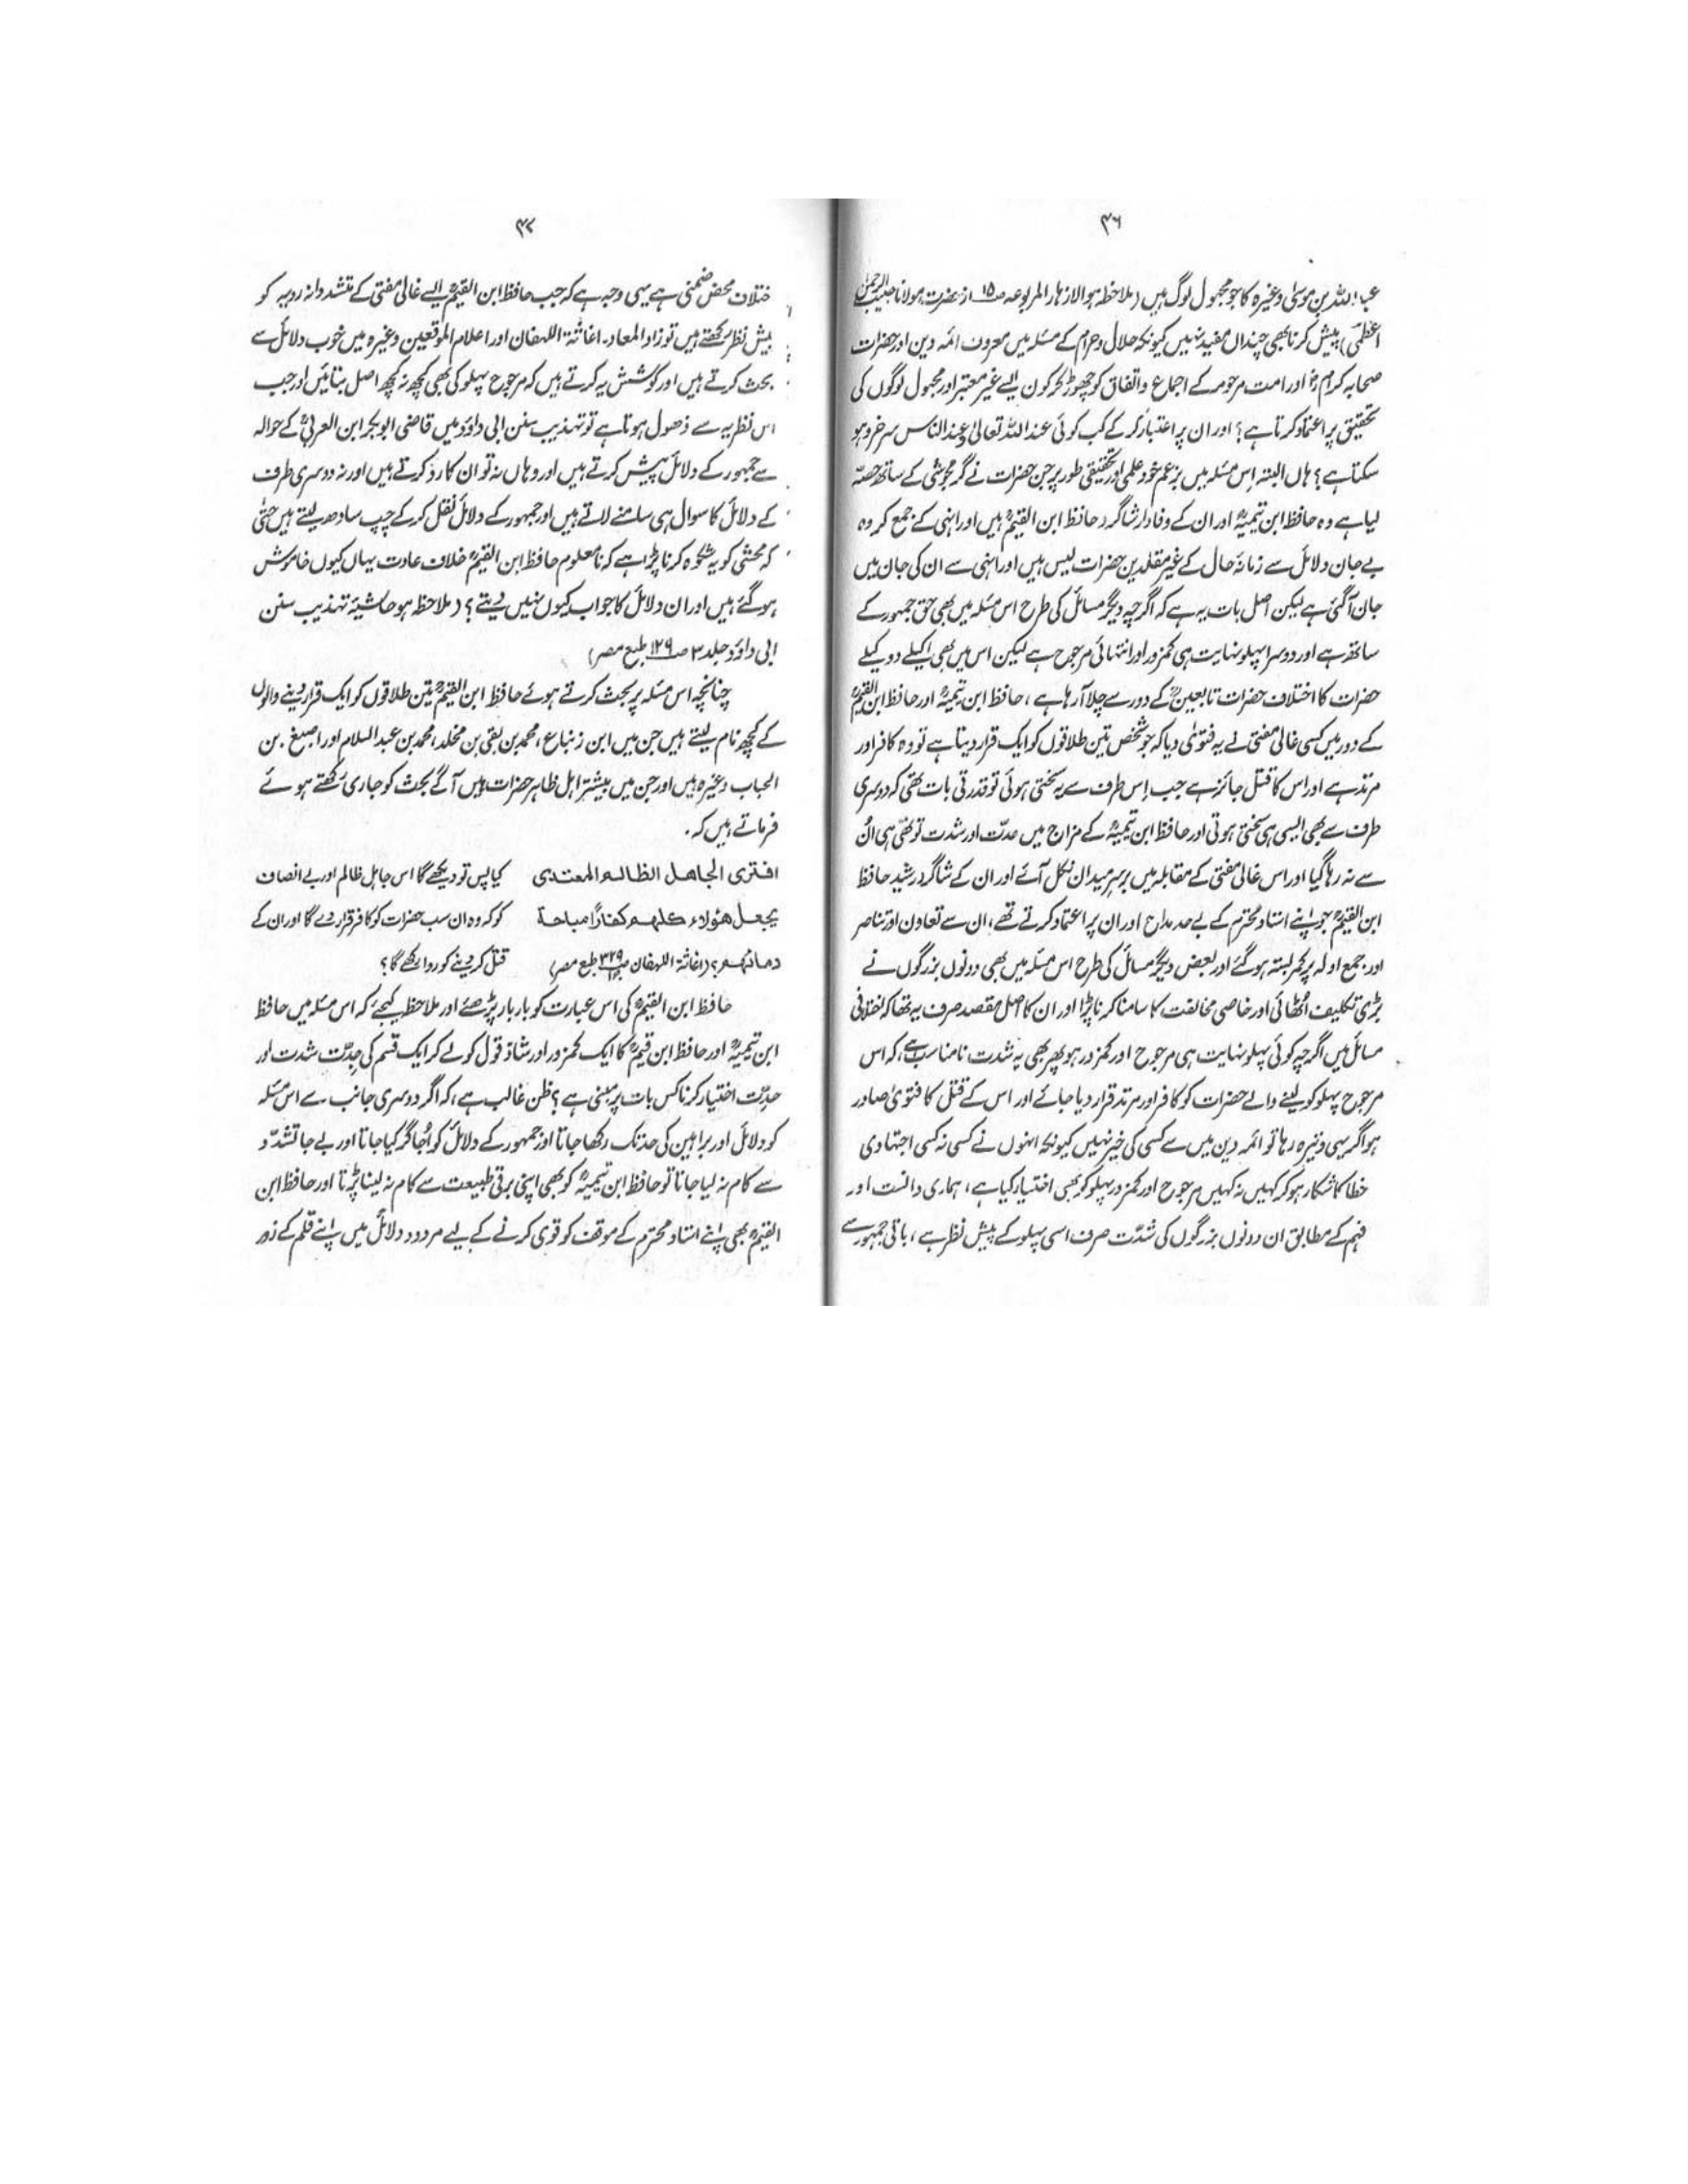 ۴۶
عبداللہ بن موسیٰ وغیرہ کا جو مجہول لوگ ہیں (ملاحظہ ہو الازہار المربوعہ ص۱۵ از حضرت مولانا حبیب الرحمٰن
اعظمی) پیش کرنا بھی چنداں مفید نہیں کیونکہ حلال و حرام کے مسئلہ میں معروف ائمہ دین اور حضرات
صحابہ کرامؓ اور امت مرحومہ کے اجماع و اتفاق کو چھوڑ کر کون ایسے غیر معتبر اور مجہول لوگوں کی
تحقیق پر اعتماد کرتا ہے؟ اور ان پر اعتبار کر کے کب کوئی عند اللہ تعالیٰ وعند الناس سرخرو ہو
سکتا ہے؟ ہاں البتہ اِس مسئلہ میں بزعم خود علمی اور تحقیقی طور پر جن حضرات نے گرمجوشی کے ساتھ حصّہ
لیا ہے وہ حافظ ابن تیمیہؒ اور ان کے وفادار شاگرد حافظ ابن القیمؒ ہیں اور انہی کے جمع کردہ
بے جان دلائل سے زمانۂ حال کے غیر مقلدین حضرات لیس ہیں اور انہی سے ان کی جان میں
جان آگئی ہے لیکن اصل بات یہ ہے کہ اگرچہ دیگر مسائل کی طرح اس مسئلہ میں بھی حق جمہور کے
ساتھ ہے اور دوسرا پہلو نہایت ہی کمزور اور انتہائی مرجوح ہے لیکن اس میں بھی اکیلے دوکیلے
حضرات کا اختلاف حضرات تابعینؒ کے دور سے چلا آ رہا ہے، حافظ ابن تیمیہؒ اور حافظ ابن القیمؒ
کے دور میں کسی غالی مفتی نے یہ فتویٰ دیا کہ جو شخص تین طلاقوں کو ایک قرار دیتا ہے تو وہ کافر اور
مرتد ہے اور اس کا قتل جائز ہے جب اِس طرف سے یہ سختی ہوئی تو قدرتی بات تھی کہ دوسری
طرف سے بھی ایسی ہی سختی ہوتی اور حافظ ابن تیمیہؒ کے مزاج میں حدّت اور شدت تو تھی ہی اُن
سے نہ رہا گیا اور اس غالی مفتی کے مقابلہ میں برسرِ میدان نکل آئے اور ان کے شاگرد رشید حافظ
ابن القیمؒ جو اپنے استاد محترم کے بے حد مداح اور ان پر اعتماد کرتے تھے، ان سے تعاون اور تناصر
اور جمع ادلہ پر کمر بستہ ہو گئے اور بعض دیگر مسائل کی طرح اس مسئلہ میں بھی دونوں بزرگوں نے
بڑی تکلیف اُٹھائی اور خاصی مخالفت کا سامنا کرنا پڑا اور ان کا اصل مقصد صرف یہ تھا کہ اختلافی
مسائل میں اگرچہ کوئی پہلو نہایت ہی مرجوح اور کمزور ہو پھر بھی یہ شدت نامناسب ہے، کہ اس
مرجوح پہلو کو لینے والے حضرات کو کافر اور مرتد قرار دیا جائے اور اس کے قتل کا فتویٰ صادر
ہو اگر یہی وتیرہ رہا تو ائمہ دین میں سے کسی کی خیر نہیں کیونکہ انہوں نے کسی نہ کسی اجتہادی
خطا کا شکار ہو کر کہیں نہ کہیں مرجوح اور کمزور پہلو کو بھی اختیار کیا ہے، ہماری دانست اور
فہم کے مطابق ان دونوں بزرگوں کی شدّت صرف اسی پہلو کے پیش نظر ہے، باقی جمہور سے
۴۷
ختلاف محض ضمنی ہے یہی وجہ ہے کہ جب حافظ ابن القیمؒ ایسے غالی مفتی کے متشددانہ رویہ کو
پیش نظر رکھتے ہیں تو زاد المعاد، اغاثۃ اللہفان اور اعلام الموقعین وغیرہ میں خوب دلائل سے
بحث کرتے ہیں اور کوشش یہ کرتے ہیں کہ مرجوح پہلو کی بھی کچھ نہ کچھ اصل بتائیں اور جب
اس نظریہ سے ذھول ہوتا ہے تو تہذیب سنن ابی داؤد میں قاضی ابوبکر ابن العربیؒ کے حوالہ
سے جمہور کے دلائل پیش کرتے ہیں اور وہاں نہ تو ان کا ردّ کرتے ہیں اور نہ دوسری طرف
کے دلائل کا سوال ہی سامنے لاتے ہیں اور جمہور کے دلائل نقل کر کے چپ سادھ لیتے ہیں حتیٰ
کہ محشی کو یہ شکوہ کرنا پڑا ہے کہ نامعلوم حافظ ابن القیمؒ خلاف عادت یہاں کیوں خاموش
ہو گئے ہیں اور ان دلائل کا جواب کیوں نہیں دیتے؟ (ملاحظہ ہو حاشیۂ تہذیب سنن
ابی داؤد جلد ۳ ص۱۲۹ طبع مصر)
چنانچہ اس مسئلہ پر بحث کرتے ہوئے حافظ ابن القیمؒ تین طلاقوں کو ایک قرار دینے والوں
کے کچھ نام لیتے ہیں جن میں ابن زنباع، محمد بن بقی بن مخلد، محمد بن عبد السلام اور اصبغ بن
الحباب وغیرہ ہیں اور جن میں بیشتر اہل ظاہر حضرات ہیں آگے بحث کو جاری رکھتے ہوئے
فرماتے ہیں کہ۔
افتری الجاهل الظالم المعتدی کیا پس تو دیکھے گا اس جاہل ظالم اور بے انصاف
یجعل هٰؤلاء کلهم کفارًا مباحة کو کہ وہ ان سب حضرات کو کافر قرار دے گا اور ان کے
دمائهم؟ (اغاثۃ اللہفان ص۳۲۹ طبع مصر) قتل کر دینے کو روا رکھے گا؟
حافظ ابن القیمؒ کی اس عبارت کو بار بار پڑھئے اور ملاحظہ کیجئے کہ اس مسئلہ میں حافظ
ابن تیمیہؒ اور حافظ ابن قیمؒ کا ایک کمزور اور شاذ قول کو لے کر ایک قسم کی جدّت شدت اور
حدّت اختیار کرنا کس بات پر مبنی ہے؟ ظن غالب ہے، کہ اگر دوسری جانب سے اس مسئلہ
کو دلائل اور براہین کی حد تک رکھا جاتا اور جمہور کے دلائل کو اُجاگر کیا جاتا اور بے جا تشدّد
سے کام نہ لیا جاتا تو حافظ ابن تیمیہؒ کو بھی اپنی برقی طبیعت سے کام نہ لینا پڑتا اور حافظ ابن
القیمؒ بھی اپنے استاد محترم کے موقف کو قوی کرنے کے لیے مردود دلائل میں اپنے قلم کے زور